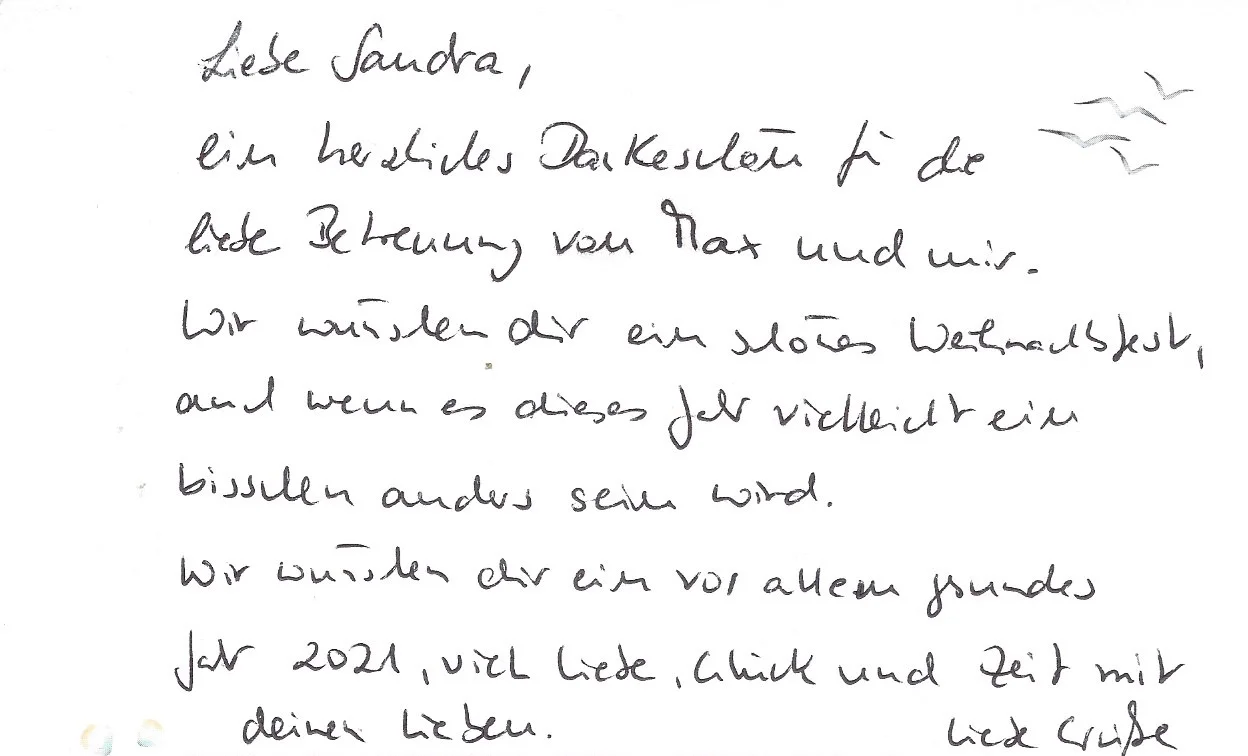 Liebe Sandra,
ein herzliches Dankeschön für die
liebe Betreuung von Max und mir.
Wir wünschen dir ein schönes Weihnachtsfest,
auch wenn es dieses Jahr vielleicht ein
bisschen anders sein wird.
Wir wünschen dir ein vor allem gesundes
Jahr 2021, viel Liebe, Glück und Zeit mit
deinen Lieben.
Liebe Grüße